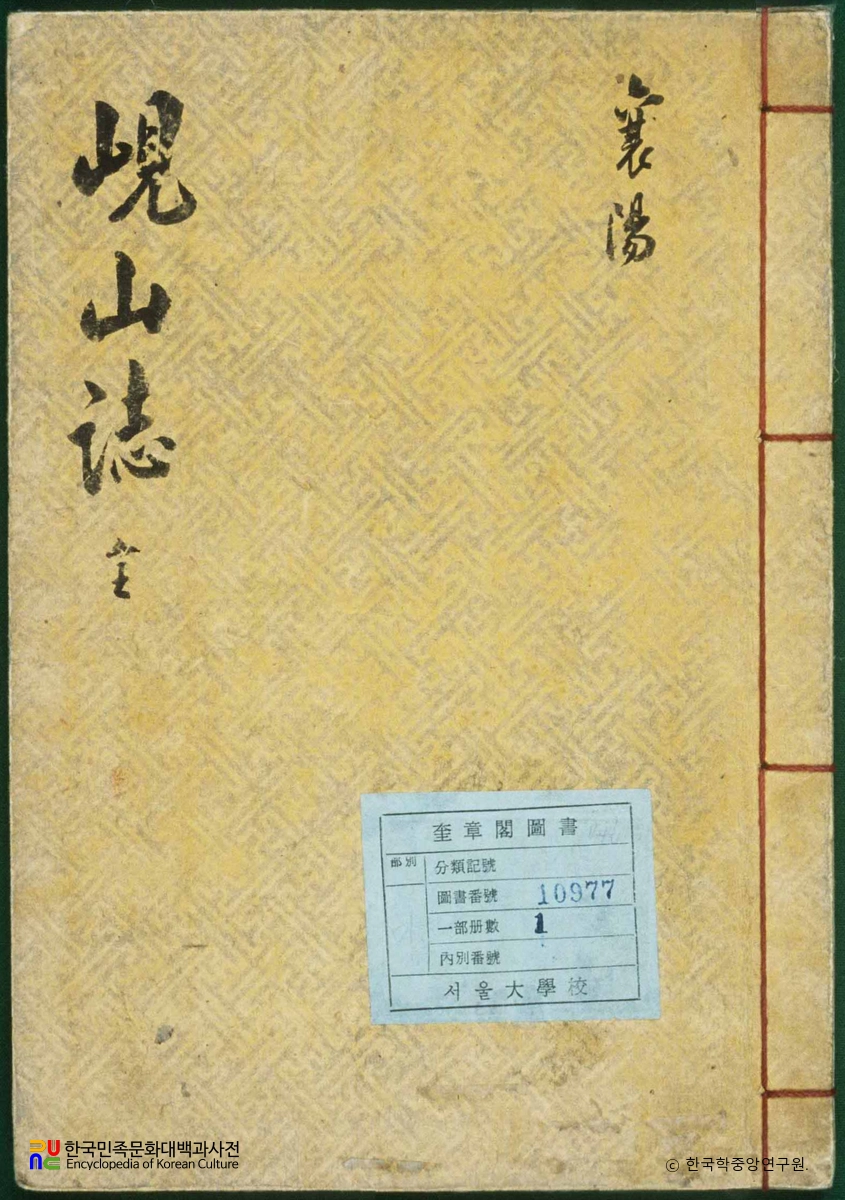 襄陽
峴山誌 全
奎章閣圖書
部別
分類記號
圖書番號 10977
一部册數 1
內別番號
서울大學校
한국민족문화대백과사전
Encyclopedia of Korean Culture
© 한국학중앙연구원.